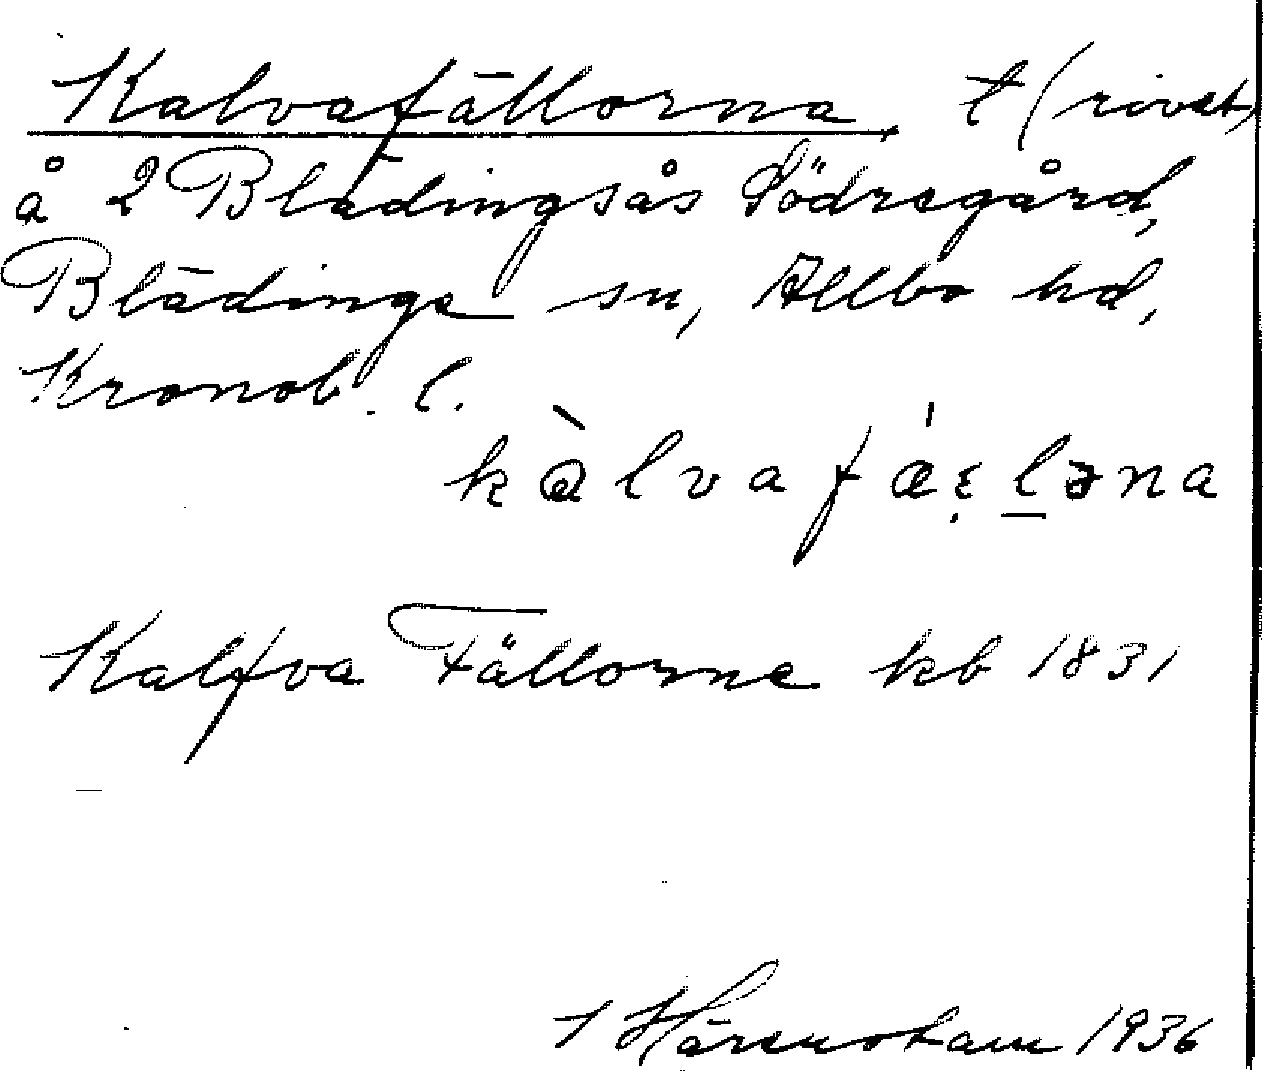 Kalvafällorna, t (rivet)
å 2 Blädingsås Södregård,
Blädinge sn, Allbo hd,
Kronob. l.
kàlvafáɛlәna
Kalfva Fällorne kb 1831
1936